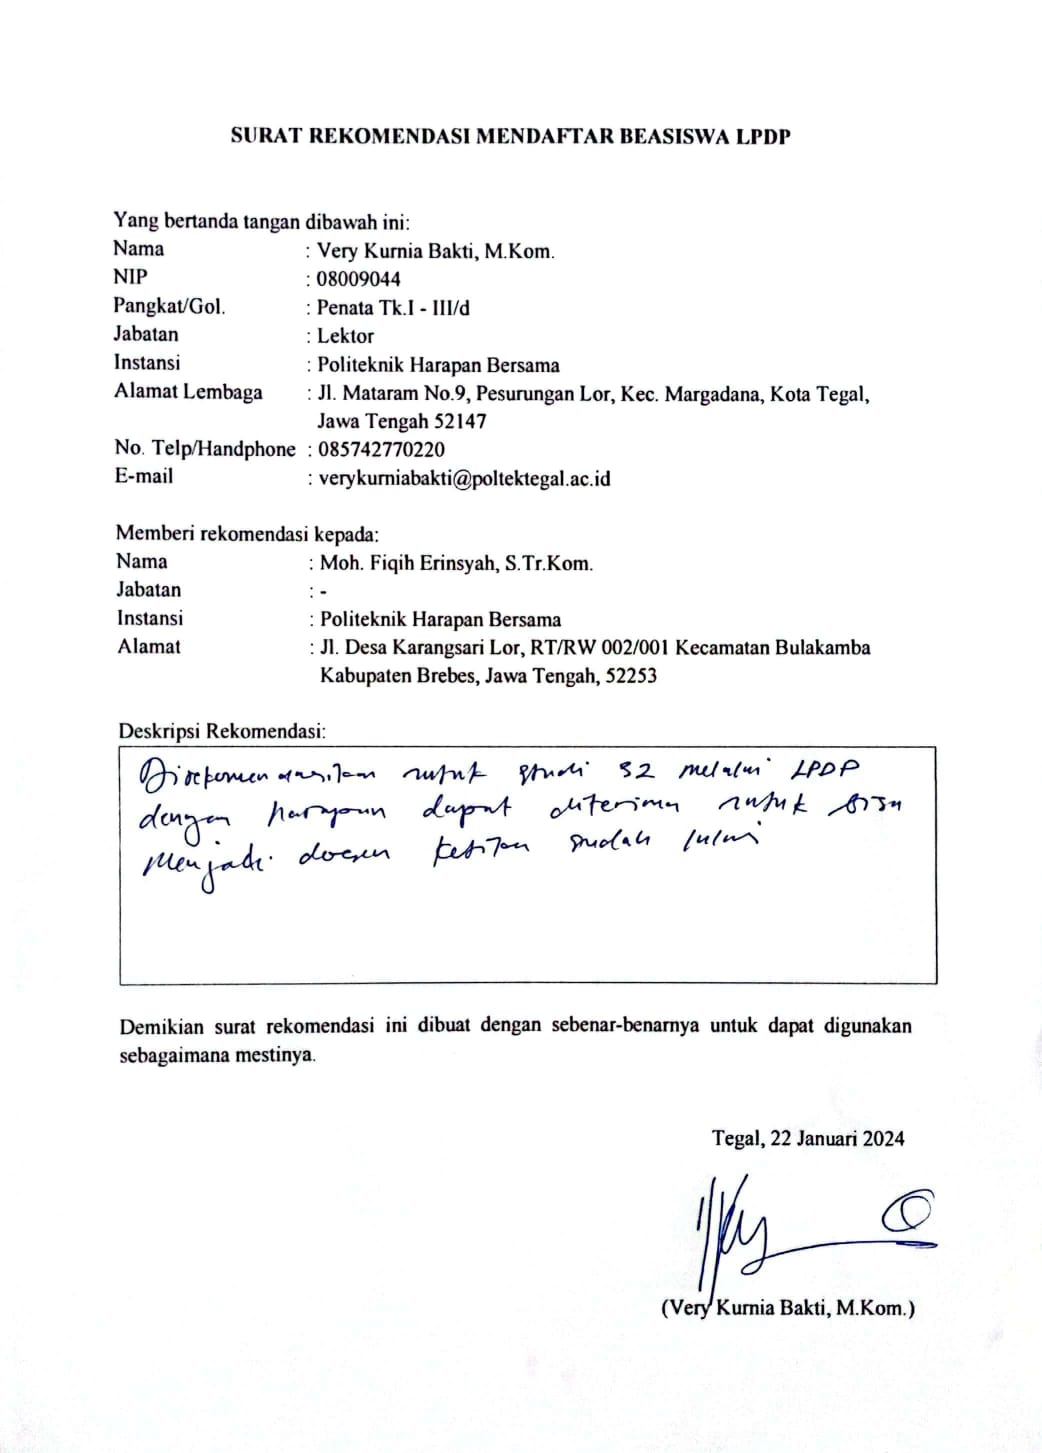 SURAT REKOMENDASI MENDAFTAR BEASISWA LPDP
Yang bertanda tangan dibawah ini:
Nama : Very Kurnia Bakti, M.Kom.
NIP : 08009044
Pangkat/Gol. : Penata Tk.I - III/d
Jabatan : Lektor
Instansi : Politeknik Harapan Bersama
Alamat Lembaga : Jl. Mataram No.9, Pesurungan Lor, Kec. Margadana, Kota Tegal,
Jawa Tengah 52147
No. Telp/Handphone : 085742770220
E-mail : verykurniabakti@poltektegal.ac.id
Memberi rekomendasi kepada:
Nama : Moh. Fiqih Erinsyah, S.Tr.Kom.
Jabatan : -
Instansi : Politeknik Harapan Bersama
Alamat : Jl. Desa Karangsari Lor, RT/RW 002/001 Kecamatan Bulakamba
Kabupaten Brebes, Jawa Tengah, 52253
Deskripsi Rekomendasi:
Direkomendasikan untuk studi S2 melalui LPDP
dengan harapan dapat diterima untuk bisa
menjadi dosen ketika sudah lulus
Demikian surat rekomendasi ini dibuat dengan sebenar-benarnya untuk dapat digunakan
sebagaimana mestinya.
Tegal, 22 Januari 2024
(Very Kurnia Bakti, M.Kom.)